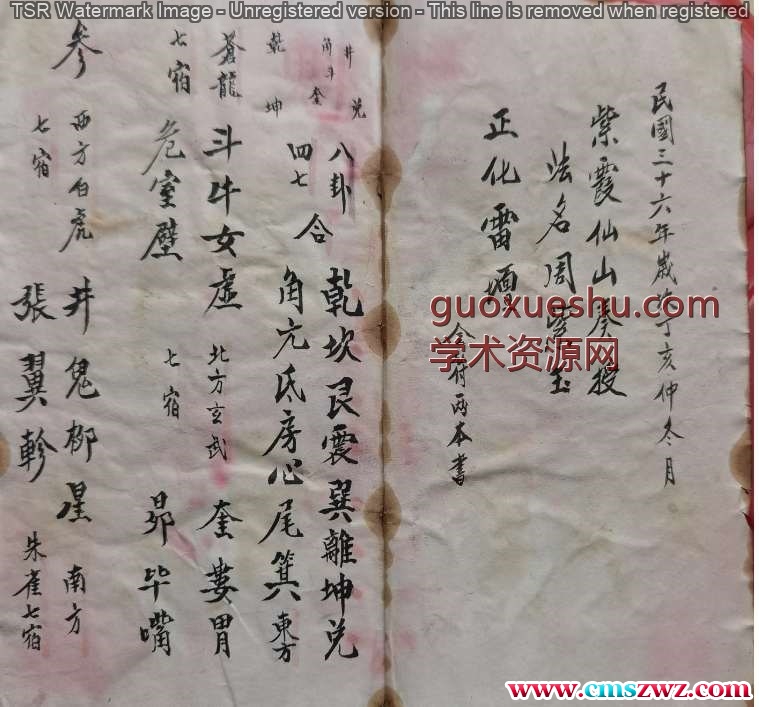 TSR Watermark Image - Unregistered version - This line is removed when registered
民國三十六年歲次丁亥仲冬月
紫霞仙山奏授
法名周
玉
正化雷壇
付两本書
井 兑
角斗奎
乾 坤
八卦
四七
合
乾坎艮震巽離坤兑
角亢氐房心尾箕 東方
蒼龍
七宿
斗牛女虛
危室壁
北方玄武
七宿
奎婁胃
昴毕嘴
參
西方白虎
七宿
井鬼柳星
張翼軫
南方
朱雀七宿
guoxueshu.com
学术资源网
www.cmszwz.com